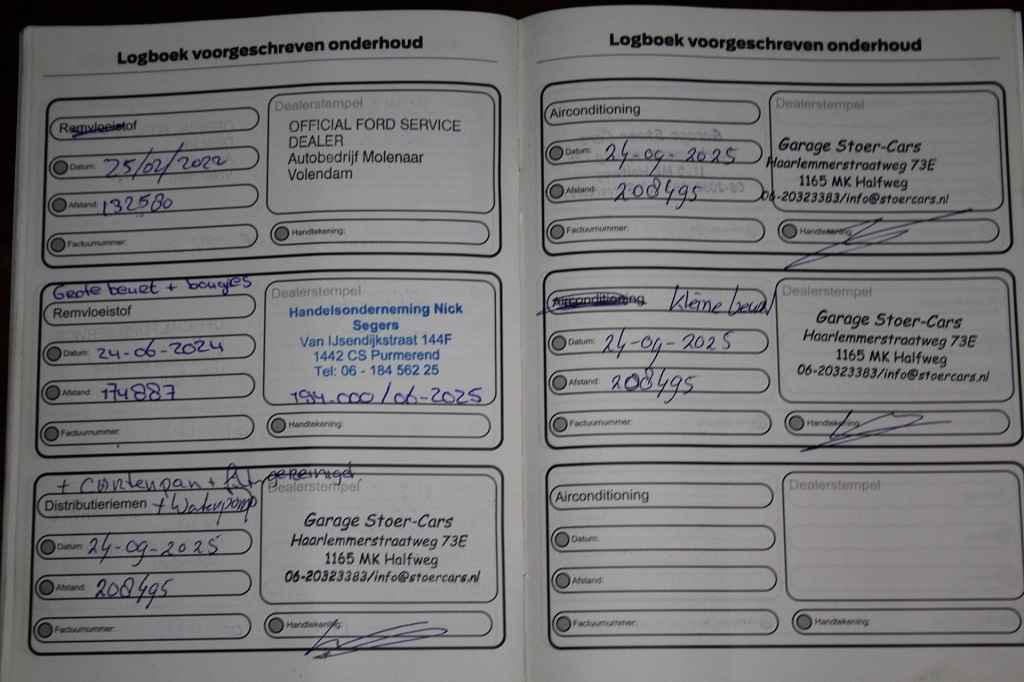 Logboek voorgeschreven onderhoud
Remvloeistof
Datum: 25/02/2022
Afstand: 132580
Factuurnummer:
Dealerstempel
OFFICIAL FORD SERVICE
DEALER
Autobedrijf Molenaar
Volendam
Handtekening:
Grote beurt + bougies
Remvloeistof
Datum: 24-06-2024
Afstand: 174887
Factuurnummer:
Dealerstempel
Handelsonderneming Nick
Segers
Van IJsendijkstraat 144F
1442 CS Purmerend
Tel: 06 - 184 562 25
194.000/06-2025
Handtekening:
+ carterpan + gereinigd,
Distributieriemen + Waterpomp
Datum: 24-09-2025
Afstand: 208495
Factuurnummer:
Dealerstempel
Garage Stoer-Cars
Haarlemmerstraatweg 73E
1165 MK Halfweg
06-20323383/info@stoercars.nl
Handtekening:
Logboek voorgeschreven onderhoud
Airconditioning
Datum: 24-09-2025
Afstand: 208495
Factuurnummer:
Dealerstempel
Garage Stoer-Cars
Haarlemmerstraatweg 73E
1165 MK Halfweg
06-20323383/info@stoercars.nl
Handtekening:
Airconditioning Kleine beurt
Datum: 24-09-2025
Afstand: 208495
Factuurnummer:
Dealerstempel
Garage Stoer-Cars
Haarlemmerstraatweg 73E
1165 MK Halfweg
06-20323383/info@stoercars.nl
Handtekening:
Airconditioning
Datum:
Afstand:
Factuurnummer:
Dealerstempel
Handtekening: